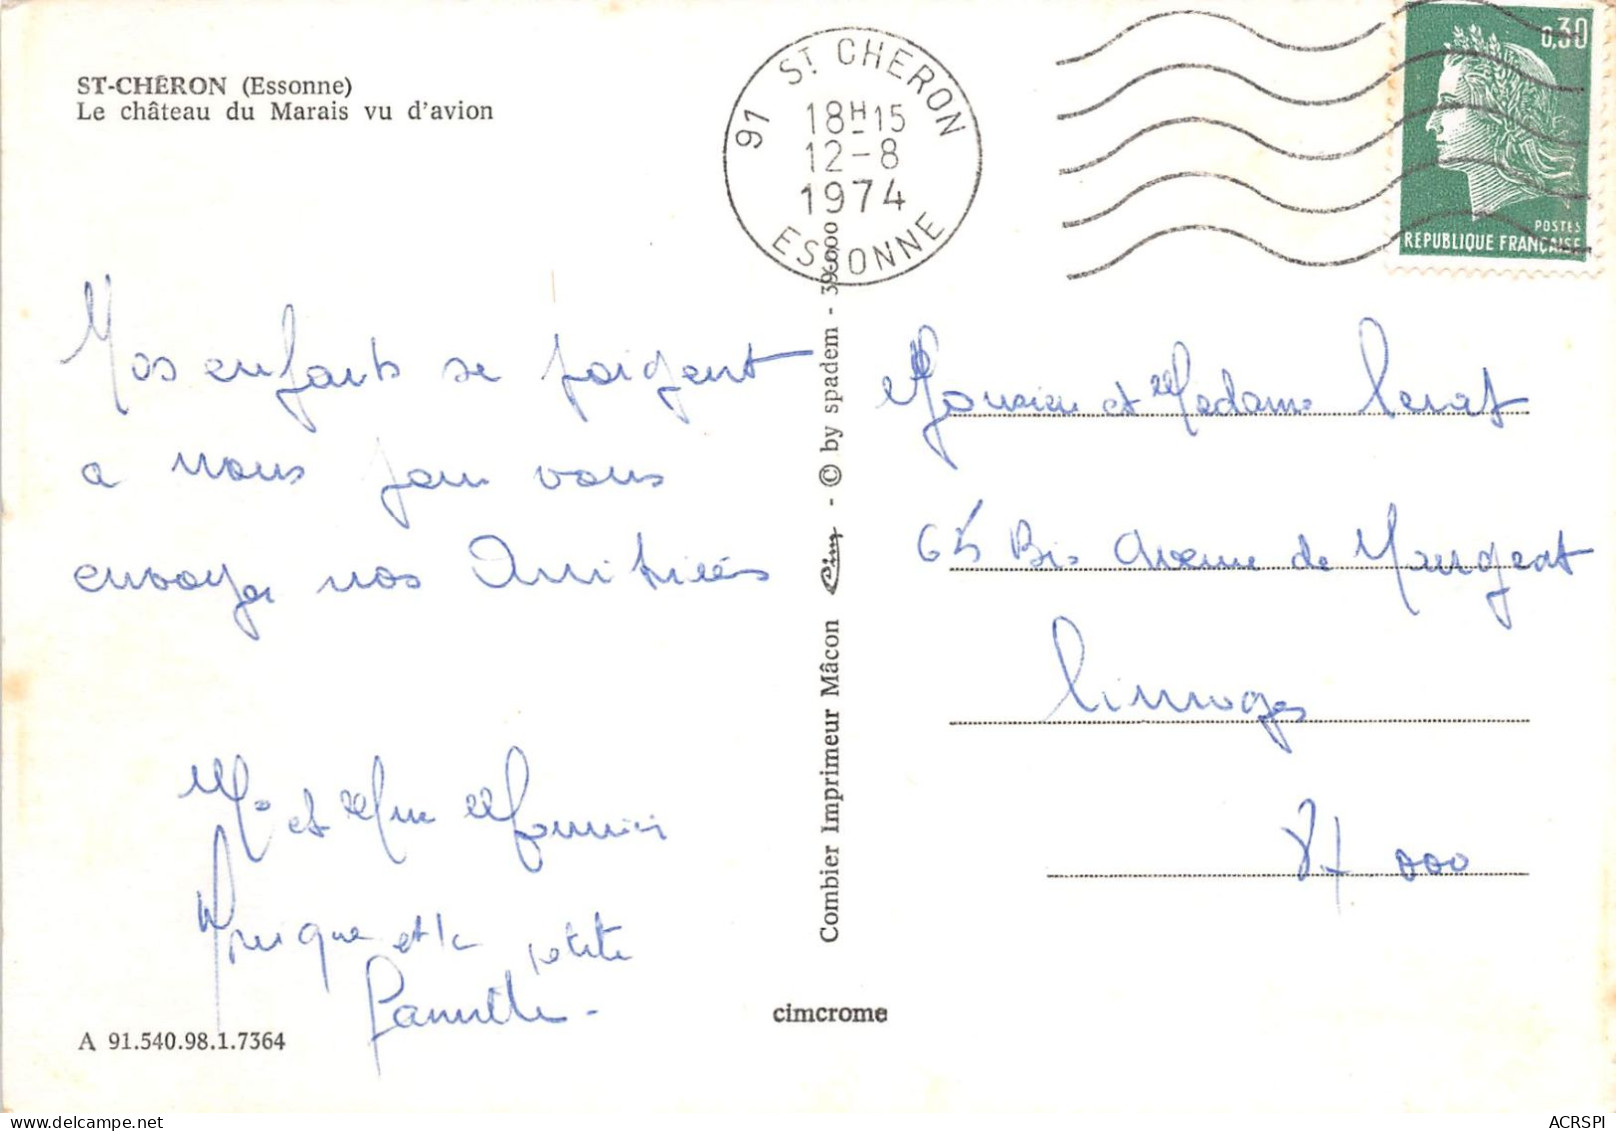 ST-CHÉRON (Essonne)
Le château du Marais vu d'avion
91 ST CHERON
18H15
12-8
1974
ESSONNE
0,30
POSTES
REPUBLIQUE FRANÇAISE
Nos enfants se joignent
a nous pour vous
envoyer nos Amitiés
Mr et Mme
et la petite
Famille.
Monsieur et Madame
65 Bis Avenue de
Limoges
87.000
Combier Imprimeur Mâcon Cim - © by spadem - 39-000
cimcrome
A 91.540.98.1.7364
ACRSPI